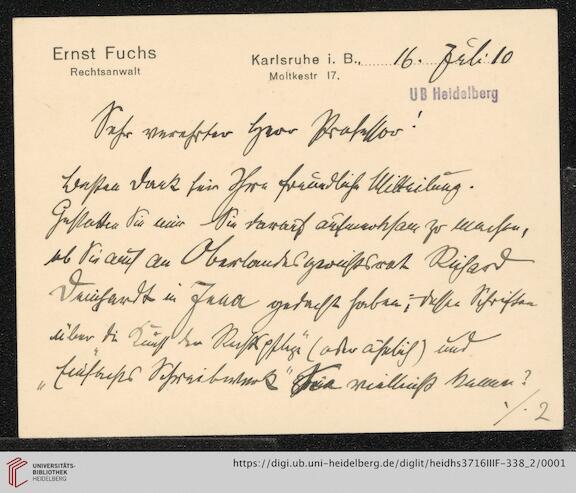 Ernst Fuchs
Rechtsanwalt
Karlsruhe i. B., 16. Juli 10
Moltkestr 17.
UB Heidelberg
Sehr verehrter Herr Professor!
Besten Dank für Ihre freundliche Mitteilung.
Gestatten Sie mir Sie darauf aufmerksam zu machen,
ob Sie auch an Oberlandesgerichtsrat Richard
Deinhardt in Jena gedacht haben; dessen Schriften
über die Kunst der Rechtspflege (oder ähnlich) und
„Einfachers Schreibwerk" Sie vielleicht kennen?
./. 2
UNIVERSITÄTS-
BIBLIOTHEK
HEIDELBERG
https://digi.ub.uni-heidelberg.de/diglit/heidhs3716IIIF-338_2/0001